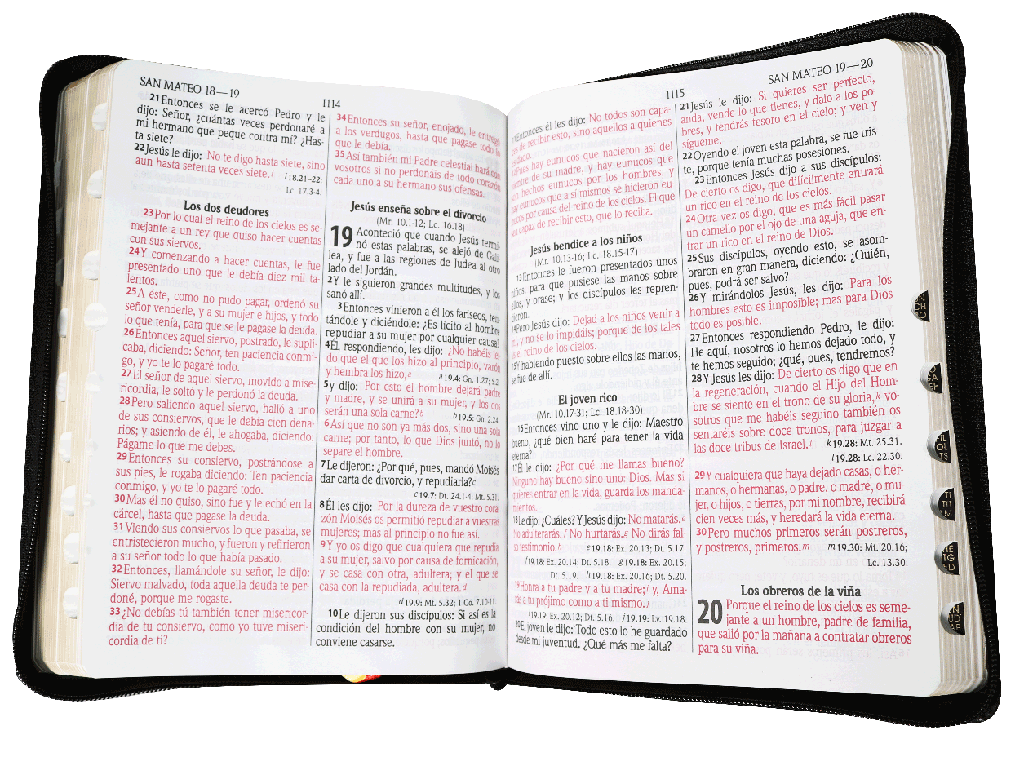 SAN MATEO 18—19
1114
21Entonces se le acercó Pedro y le
dijo: Señor, ¿cuántas veces perdonaré a
mi hermano que peque contra mí? ¿Has-
ta siete?
22Jesús le dijo: No te digo hasta siete, sino
aun hasta setenta veces siete.
Lc. 17.3-4.
Los dos deudores
23Por lo cual el reino de los cielos es se-
mejante a un rey que quiso hacer cuentas
con sus siervos.
24Y comenzando a hacer cuentas, le fue
presentado uno que le debía diez mil ta-
lentos.
25A éste, como no pudo pagar, ordenó su
señor venderle, y a su mujer e hijos, y todo
lo que tenía, para que se le pagase la deuda.
26Entonces aquel siervo, postrado, le supli-
caba, diciendo: Señor, ten paciencia conmi-
go, y yo te lo pagaré todo.
27El señor de aquel siervo, movido a mise-
ricordia, le soltó y le perdonó la deuda.
28Pero saliendo aquel siervo, halló a uno
de sus consiervos, que le debía cien dena-
rios; y asiendo de él, le ahogaba, diciendo:
Págame lo que me debes.
29Entonces su consiervo, postrándose a
sus pies, le rogaba diciendo: Ten paciencia
conmigo, y yo te lo pagaré todo.
30Mas él no quiso, sino fue y le echó en la
cárcel, hasta que pagase la deuda.
31Viendo sus consiervos lo que pasaba, se
entristecieron mucho, y fueron y refirieron
a su señor todo lo que había pasado.
32Entonces, llamándole su señor, le dijo:
Siervo malvado, toda aquella deuda te per-
doné, porque me rogaste.
33¿No debías tú también tener misericor-
dia de tu consiervo, como yo tuve miseri-
cordia de ti?
34Entonces su señor, enojado, le entregó
a los verdugos, hasta que pagase todo lo
que le debía.
35Así también mi Padre celestial hará con
vosotros si no perdonáis de todo corazón
cada uno a su hermano sus ofensas.
Jesús enseña sobre el divorcio
(Mr. 10.1-12; Lc. 16.18)
19 Aconteció que cuando Jesús termi-
nó estas palabras, se alejó de Gali-
lea, y fue a las regiones de Judea al otro
lado del Jordán.
2Y le siguieron grandes multitudes, y los
sanó allí.
3Entonces vinieron a él los fariseos, ten-
tándole y diciéndole: ¿Es lícito al hombre
repudiar a su mujer por cualquier causa?
4Él, respondiendo, les dijo: ¿No habéis leí-
do que el que los hizo al principio, varón
y hembra los hizo,
a 19.4: Gn. 1.27; 5.2
5y dijo: Por esto el hombre dejará padre
y madre, y se unirá a su mujer, y los dos
serán una sola carne?
b 19.5: Gn. 2.24
6Así que no son ya más dos, sino una sola
carne; por tanto, lo que Dios juntó, no lo
separe el hombre.
7Le dijeron: ¿Por qué, pues, mandó Moisés
dar carta de divorcio, y repudiarla?
c 19.7: Dt. 24.1-4 Mt. 5.31
8Él les dijo: Por la dureza de vuestro cora-
zón Moisés os permitió repudiar a vuestras
mujeres; mas al principio no fue así.
9Y yo os digo que cualquiera que repudia
a su mujer, salvo por causa de fornicación,
y se casa con otra, adultera; y el que se
casa con la repudiada, adultera.
d 19.9: Mt. 5.32; 1 Co. 7.10-11
10Le dijeron sus discípulos: Si así es la
condición del hombre con su mujer, no
conviene casarse.
SAN MATEO 19—20
1115
Entonces él les dijo: No todos son capa-
de recibir esto, sino aquellos a quienes
dado.
Pues hay eunucos que nacieron así del
de su madre, y hay eunucos que
hechos eunucos por los hombres, y
eunucos que a sí mismos se hicieron eu-
por causa del reino de los cielos. El que
capaz de recibir esto, que lo reciba.
Jesús bendice a los niños
(Mr. 10.13-16; Lc. 18.15-17)
Entonces le fueron presentados unos
niños, para que pusiese las manos sobre
ellos, y orase; y los discípulos les repren-
dieron.
Pero Jesús dijo: Dejad a los niños venir a
mí, y no se lo impidáis; porque de los tales
es el reino de los cielos.
Y habiendo puesto sobre ellos las manos,
se fue de allí.
El joven rico
(Mr. 10.17-31; Lc. 18.18-30)
Entonces vino uno y le dijo: Maestro
bueno, ¿qué bien haré para tener la vida
eterna?
Él le dijo: ¿Por qué me llamas bueno?
Ninguno hay bueno sino uno: Dios. Mas si
quieres entrar en la vida, guarda los manda-
mientos.
Le dijo: ¿Cuáles? Y Jesús dijo: No matarás.
No adulterarás. No hurtarás. No dirás fal-
so testimonio.
19.18: Ex. 20.13; Dt. 5.17
19.18: Ex. 20.14 Dt. 5.18. 19.18: Ex. 20.15.
Dt. 5.19. 19.18: Ex. 20.16; Dt. 5.20.
Honra a tu padre y a tu madre; y, Ama-
rás a tu prójimo como a ti mismo.
19.19: Ex. 20.12; Dt. 5.16. 19.19: Lv. 19.18
El joven le dijo: Todo esto lo he guardado
desde mi juventud. ¿Qué más me falta?
21Jesús le dijo: Si quieres ser perfecto,
anda, vende lo que tienes, y dalo a los po-
bres, y tendrás tesoro en el cielo; y ven y
sígueme.
22Oyendo el joven esta palabra, se fue tris-
te, porque tenía muchas posesiones.
23Entonces Jesús dijo a sus discípulos:
De cierto os digo, que difícilmente entrará
un rico en el reino de los cielos.
24Otra vez os digo, que es más fácil pasar
un camello por el ojo de una aguja, que en-
trar un rico en el reino de Dios.
25Sus discípulos, oyendo esto, se asom-
braron en gran manera, diciendo: ¿Quién,
pues, podrá ser salvo?
26Y mirándolos Jesús, les dijo: Para los
hombres esto es imposible; mas para Dios
todo es posible.
27Entonces respondiendo Pedro, le dijo:
He aquí, nosotros lo hemos dejado todo, y
te hemos seguido; ¿qué, pues, tendremos?
28Y Jesús les dijo: De cierto os digo que en
la regeneración, cuando el Hijo del Hom-
bre se siente en el trono de su gloria,k vo-
sotros que me habéis seguido también os
sentaréis sobre doce tronos, para juzgar a
las doce tribus de Israel.
k 19.28: Mt. 25.31.
l 19.28: Lc. 22.30.
29Y cualquiera que haya dejado casas, o her-
manos, o hermanas, o padre, o madre, o mu-
jer, o hijos, o tierras, por mi nombre, recibirá
cien veces más, y heredará la vida eterna.
30Pero muchos primeros serán postreros,
y postreros, primeros.m
m 19.30: Mt. 20.16;
Lc. 13.30
Los obreros de la viña
20 Porque el reino de los cielos es seme-
jante a un hombre, padre de familia,
que salió por la mañana a contratar obreros
para su viña.